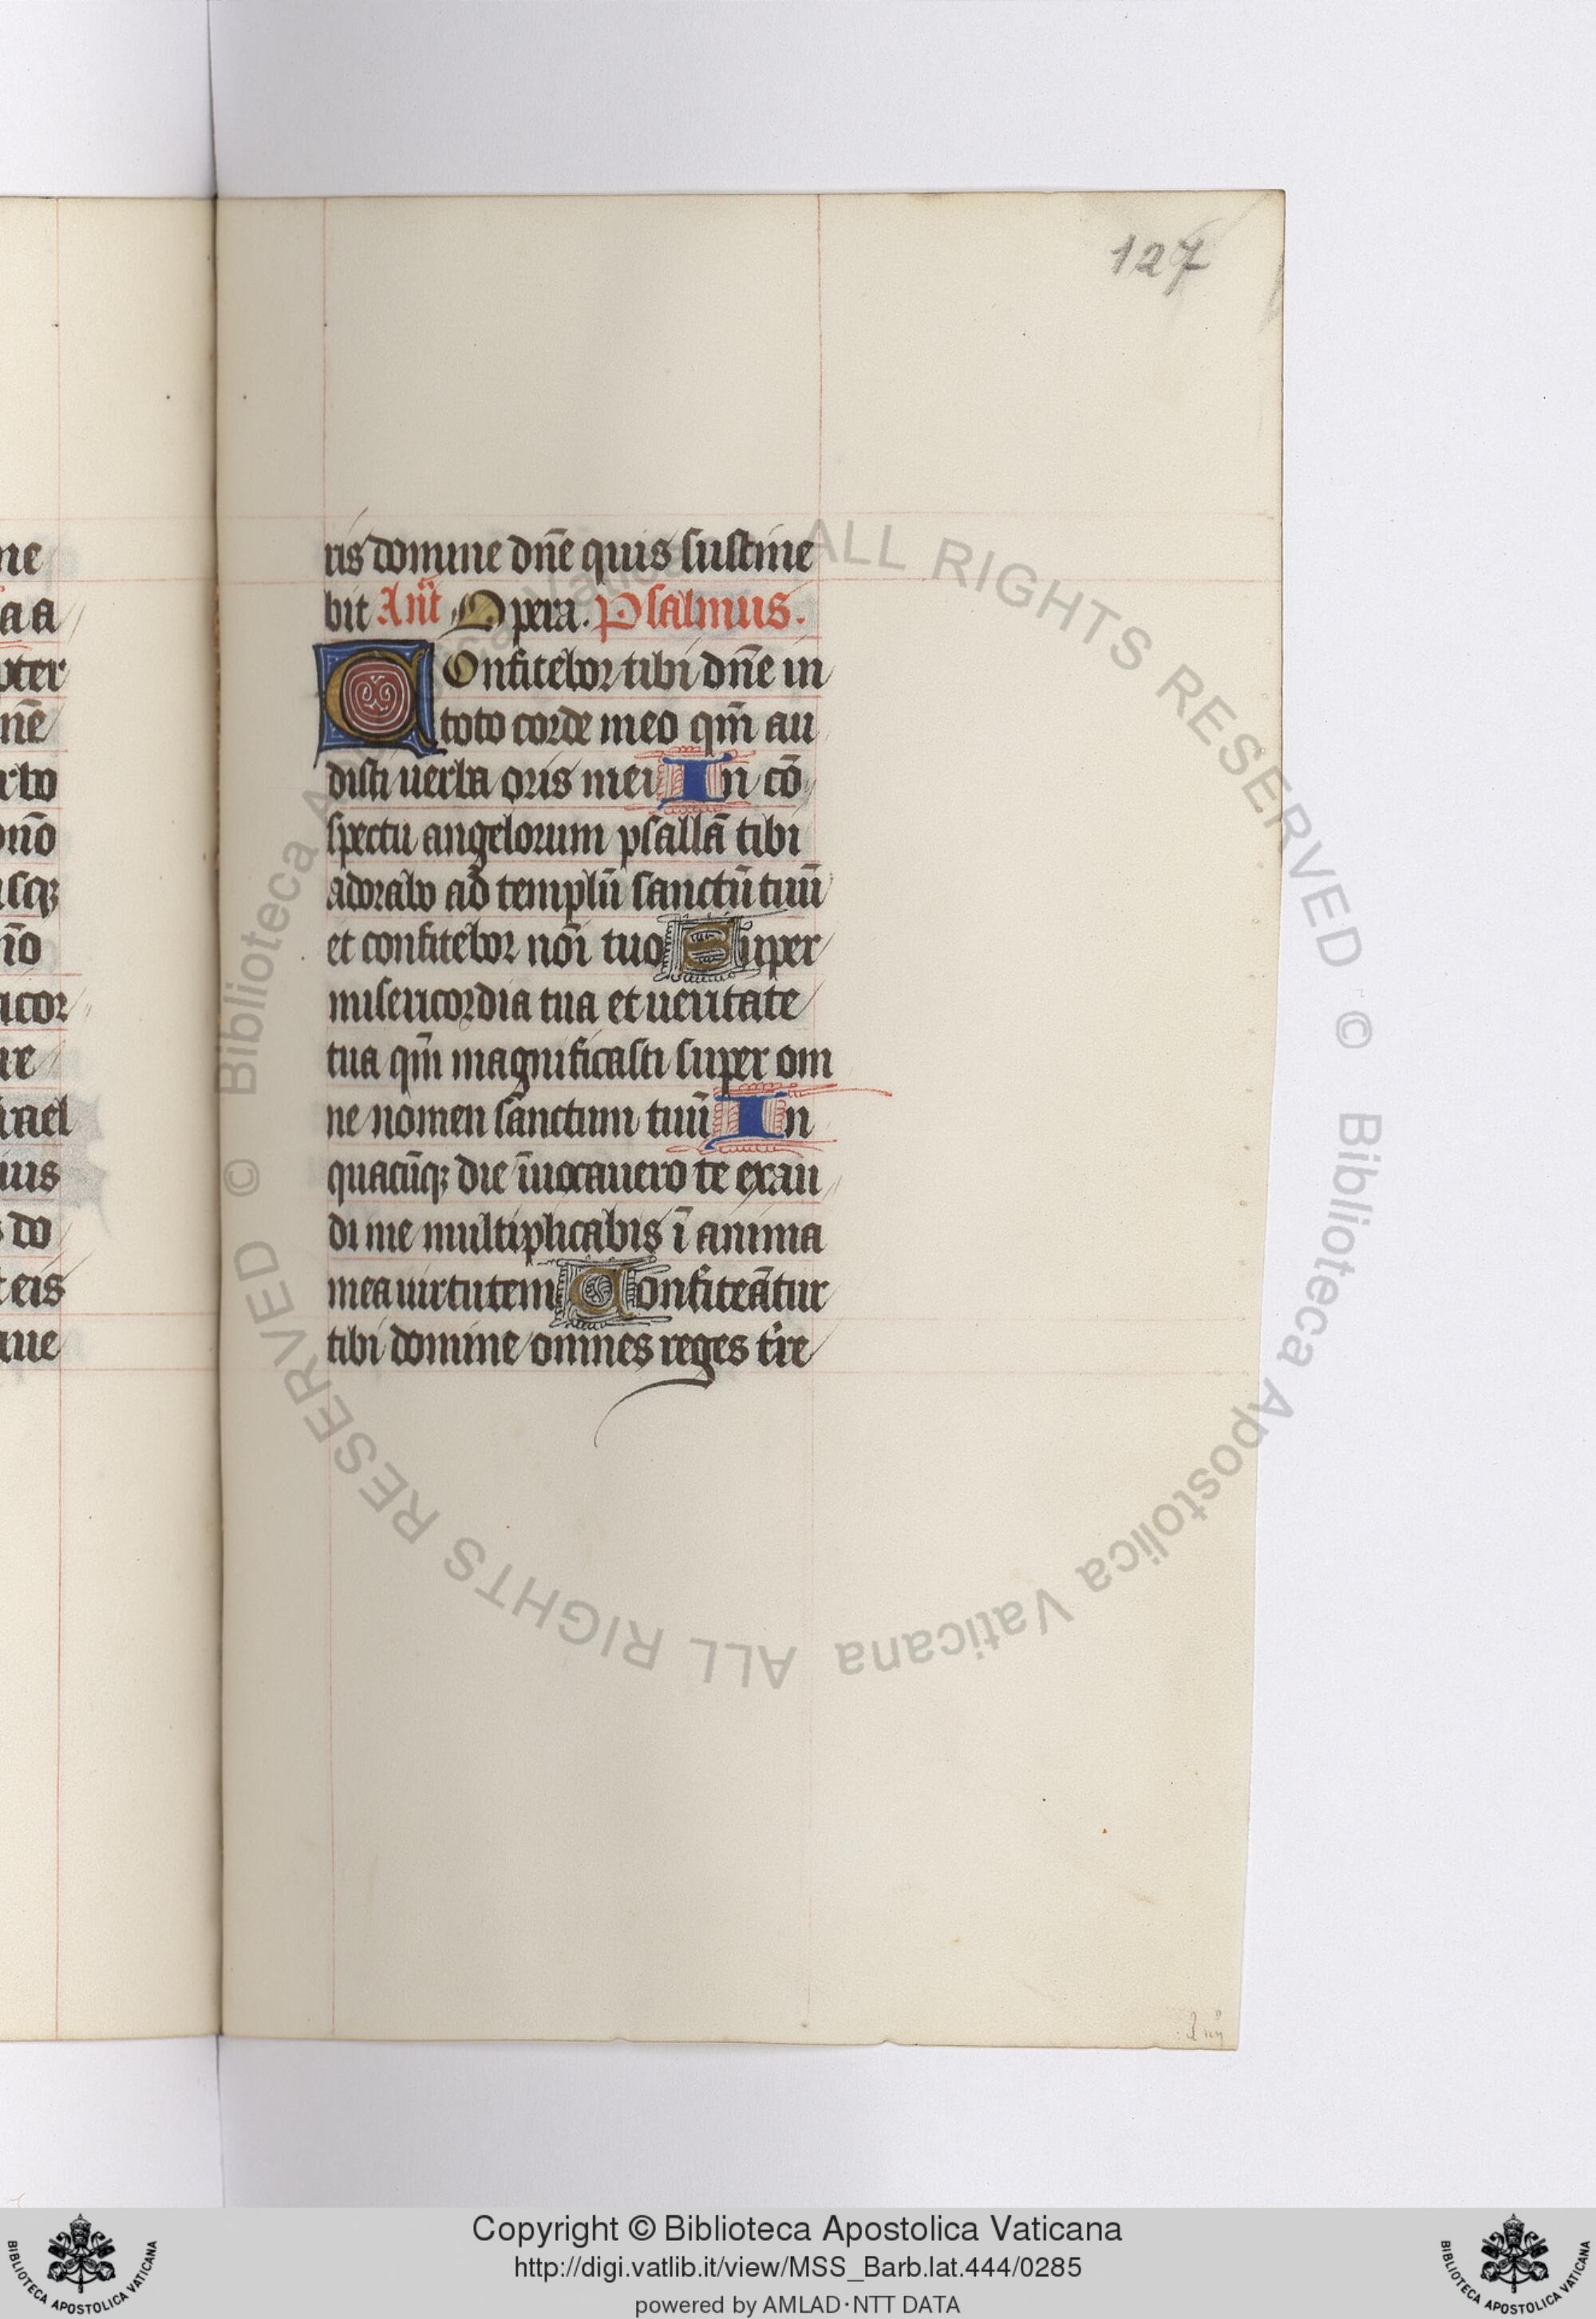 127
ris domine dñe quis sustine
bit Añt Opera. Psalmus.
COnfitebor tibi dñe in
toto corde meo qm̃ au
disti uerba oris mei In cõ
spectu angelorum psallã tibi
adorabo ad templũ sanctũ tuũ
et confitebor nõi tuo Super
misericordia tua et ueritate
tua qm̃ magnificasti super om
ne nomen sanctum tuũ In
quacũqꝫ die ĩuocauero te exau
di me multiplicabis ĩ anima
mea uirtutem Confiteãtur
tibi domine omnes reges tr̃re
ne
a a
pter
nẽ
rbo
onõ
usqꝫ
ño
icor
re
israel
ius
s do
t eis
que
© Biblioteca Apostolica Vaticana ALL RIGHTS RESERVED
© Biblioteca Apostolica Vaticana ALL RIGHTS RESERVED
Copyright © Biblioteca Apostolica Vaticana
http://digi.vatlib.it/view/MSS_Barb.lat.444/0285
powered by AMLAD·NTT DATA
BIBLIOTECA APOSTOLICA VATICANA
BIBLIOTECA APOSTOLICA VATICANA